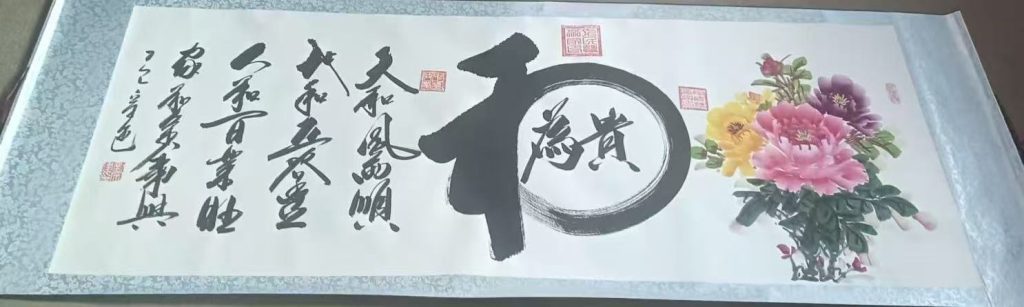 和為貴
天和風雨順
地和五谷豐
人和百業旺
家和萬事興